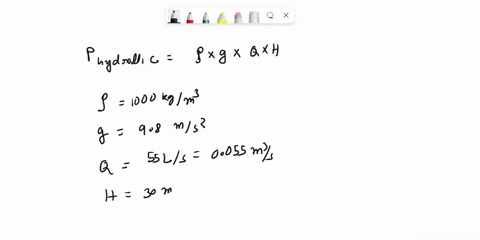 P hydrallic = ρ × g × Q × H
ρ = 1000 kg/m³
g = 9.8 m/s²
Q = 55 L/s = 0.055 m³/s
H = 30 m